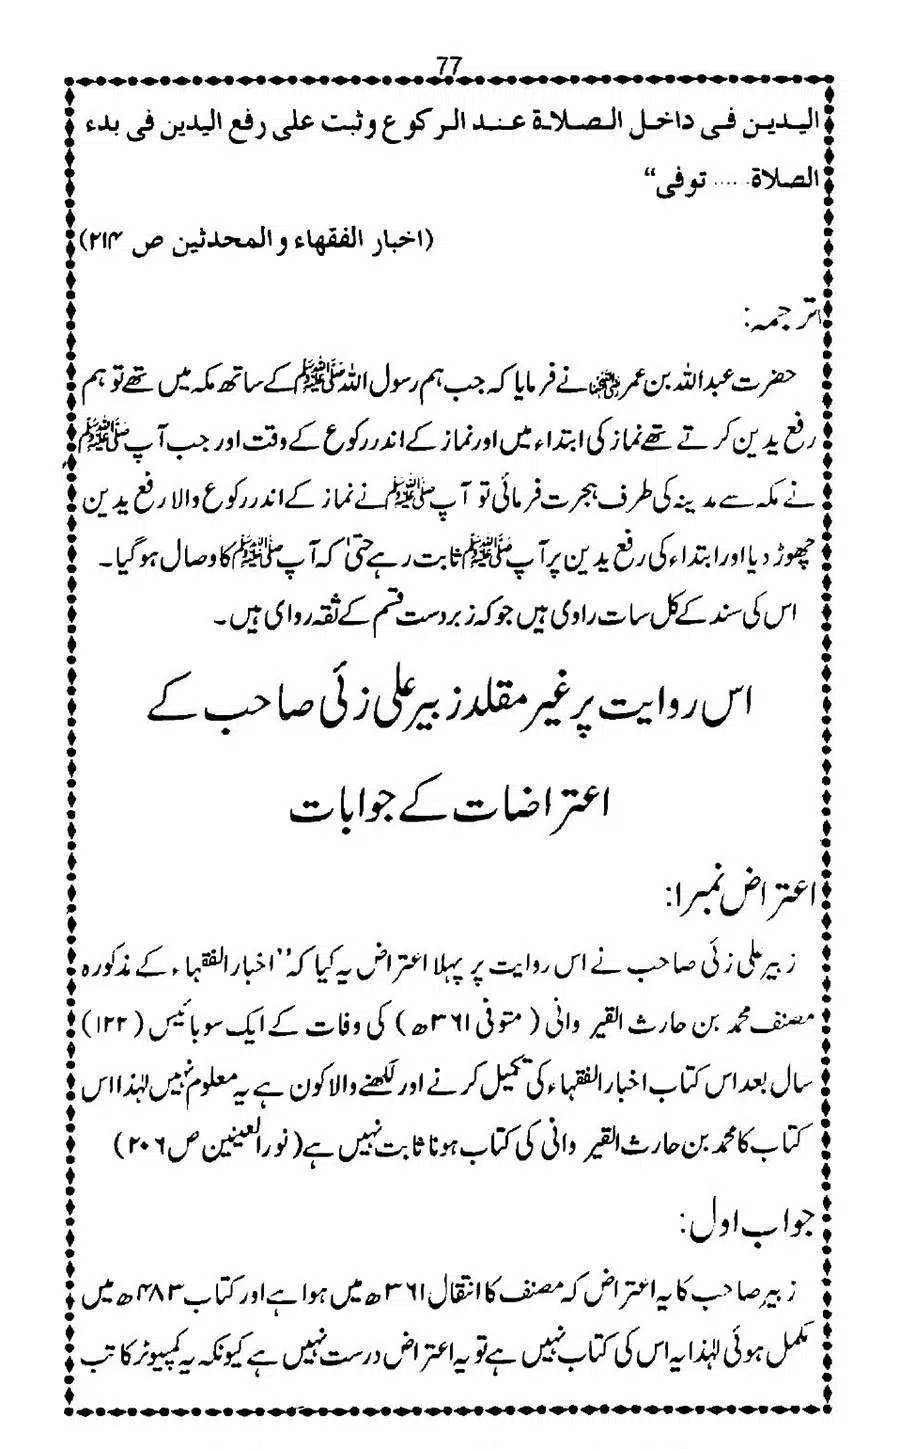 77
الیدین فی داخل الصلاة عند الرکوع و ثبت علی رفع الیدین فی بدء
الصلاة ..... توفی“
(اخبار الفقهاء و المحدثین ص ۲۱۴)
ترجمہ:
حضرت عبداللہ بن عمر رضی اللہ عنہما نے فرمایا کہ جب ہم رسول اللہ ﷺ کے ساتھ مکہ میں تھے تو ہم
رفع یدین کرتے تھے نماز کی ابتداء میں اور نماز کے اندر رکوع کے وقت اور جب آپ ﷺ
نے مکہ سے مدینہ کی طرف ہجرت فرمائی تو آپ ﷺ نے نماز کے اندر رکوع والا رفع یدین
چھوڑ دیا اور ابتداء کی رفع یدین پر آپ ﷺ ثابت رہے حتیٰ کہ آپ ﷺ کا وصال ہو گیا۔
اس کی سند کے کل سات راوی ہیں جو کہ زبردست قسم کے ثقہ روای ہیں۔
اس روایت پر غیر مقلد زبیر علی زئی صاحب کے
اعتراضات کے جوابات
اعتراض نمبر ۱:
زبیر علی زئی صاحب نے اس روایت پر پہلا اعتراض یہ کیا کہ ”اخبار الفقہاء کے مذکورہ
مصنف محمد بن حارث القیر وانی (متوفی ۳۶۱ھ) کی وفات کے ایک سو بائیس (۱۲۲)
سال بعد اس کتاب اخبار الفقہاء کی تکمیل کرنے اور لکھنے والا کون ہے یہ معلوم نہیں لہٰذا اس
کتاب کا محمد بن حارث القیر وانی کی کتاب ہونا ثابت نہیں ہے (نور العینین ص ۲۰۶)
جواب اول:
زبیر صاحب کا یہ اعتراض کہ مصنف کا انتقال ۳۶۱ھ میں ہوا ہے اور کتاب ۴۸۳ھ میں
مکمل ہوئی لہٰذا یہ اس کی کتاب نہیں ہے تو یہ اعتراض درست نہیں ہے کیونکہ یہ کمپیوٹر کاتب